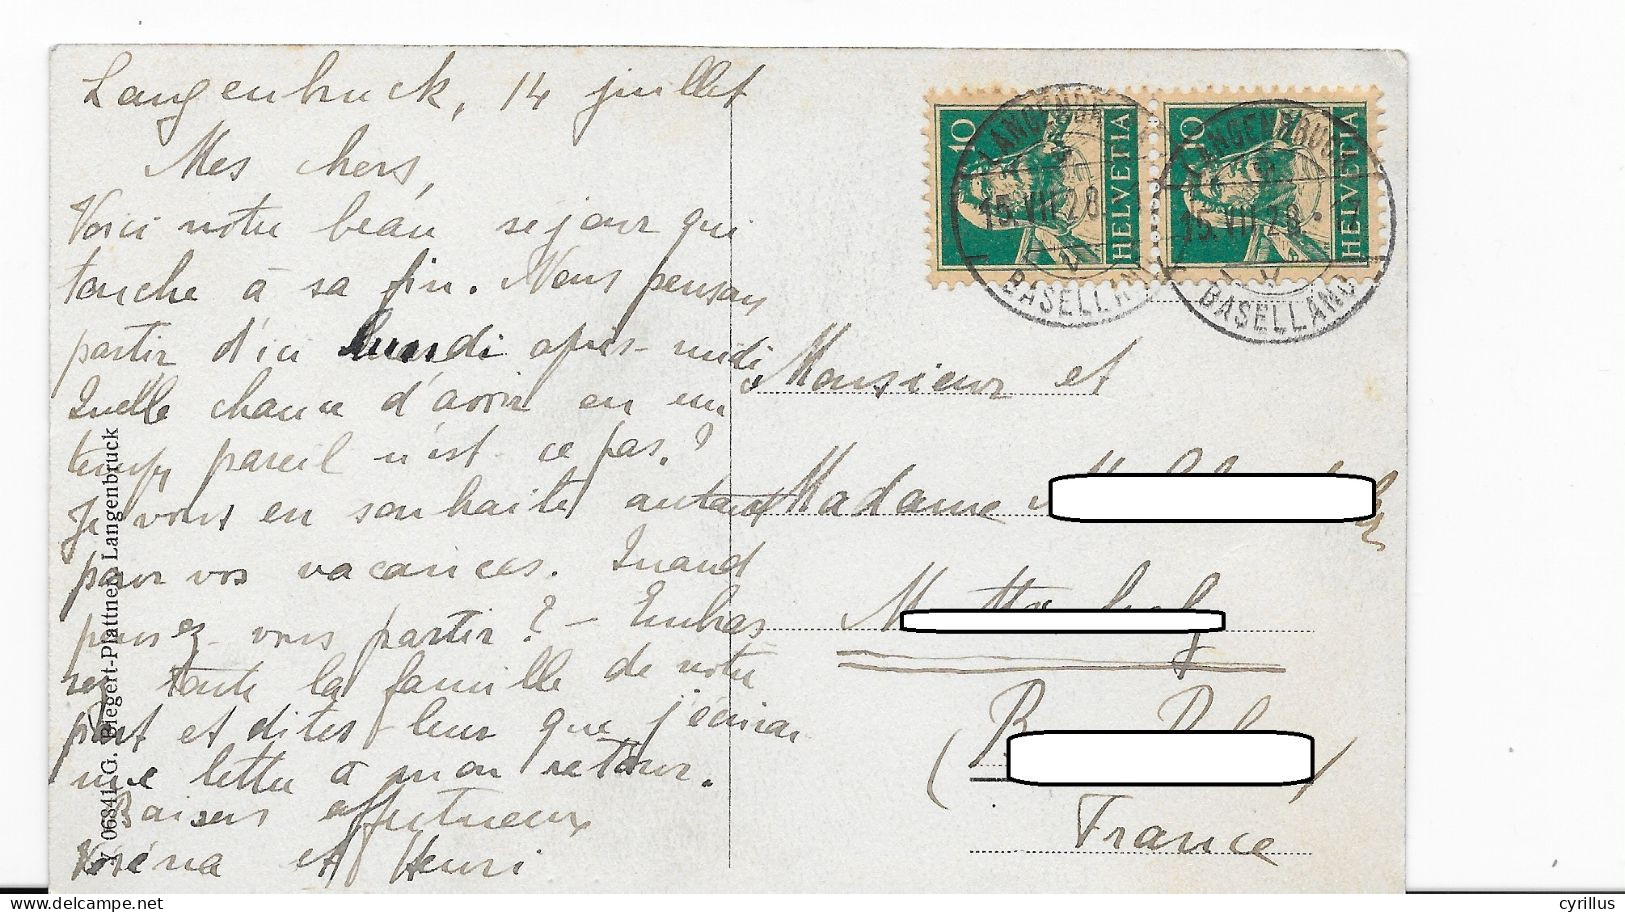 Langenbruck, 14 juillet
Mes chers,
Voici notre beau séjour qui
touche à sa fin. Nous pensons
partir d'ici lundi après-midi,
Quelle chance d'avoir eu un
temps pareil n'est ce pas?
Je vous en souhaite autant
pour vos vacances. Quand
pensez-vous partir? — Embras
sez toute la famille de notre
part et dites-leur que j'écrirai
une lettre à mon retour.
Baisers affectueux
Véréna et Henri
Y 06841 G. Biegert-Plattner, Langenbruck
10
HELVETIA
LANGENBRUCK
15.VII.28
BASELLAND
10
HELVETIA
LANGENBRUCK
15.VII.28.
BASELLAND
Monsieur et
Madame
France
cyrillus